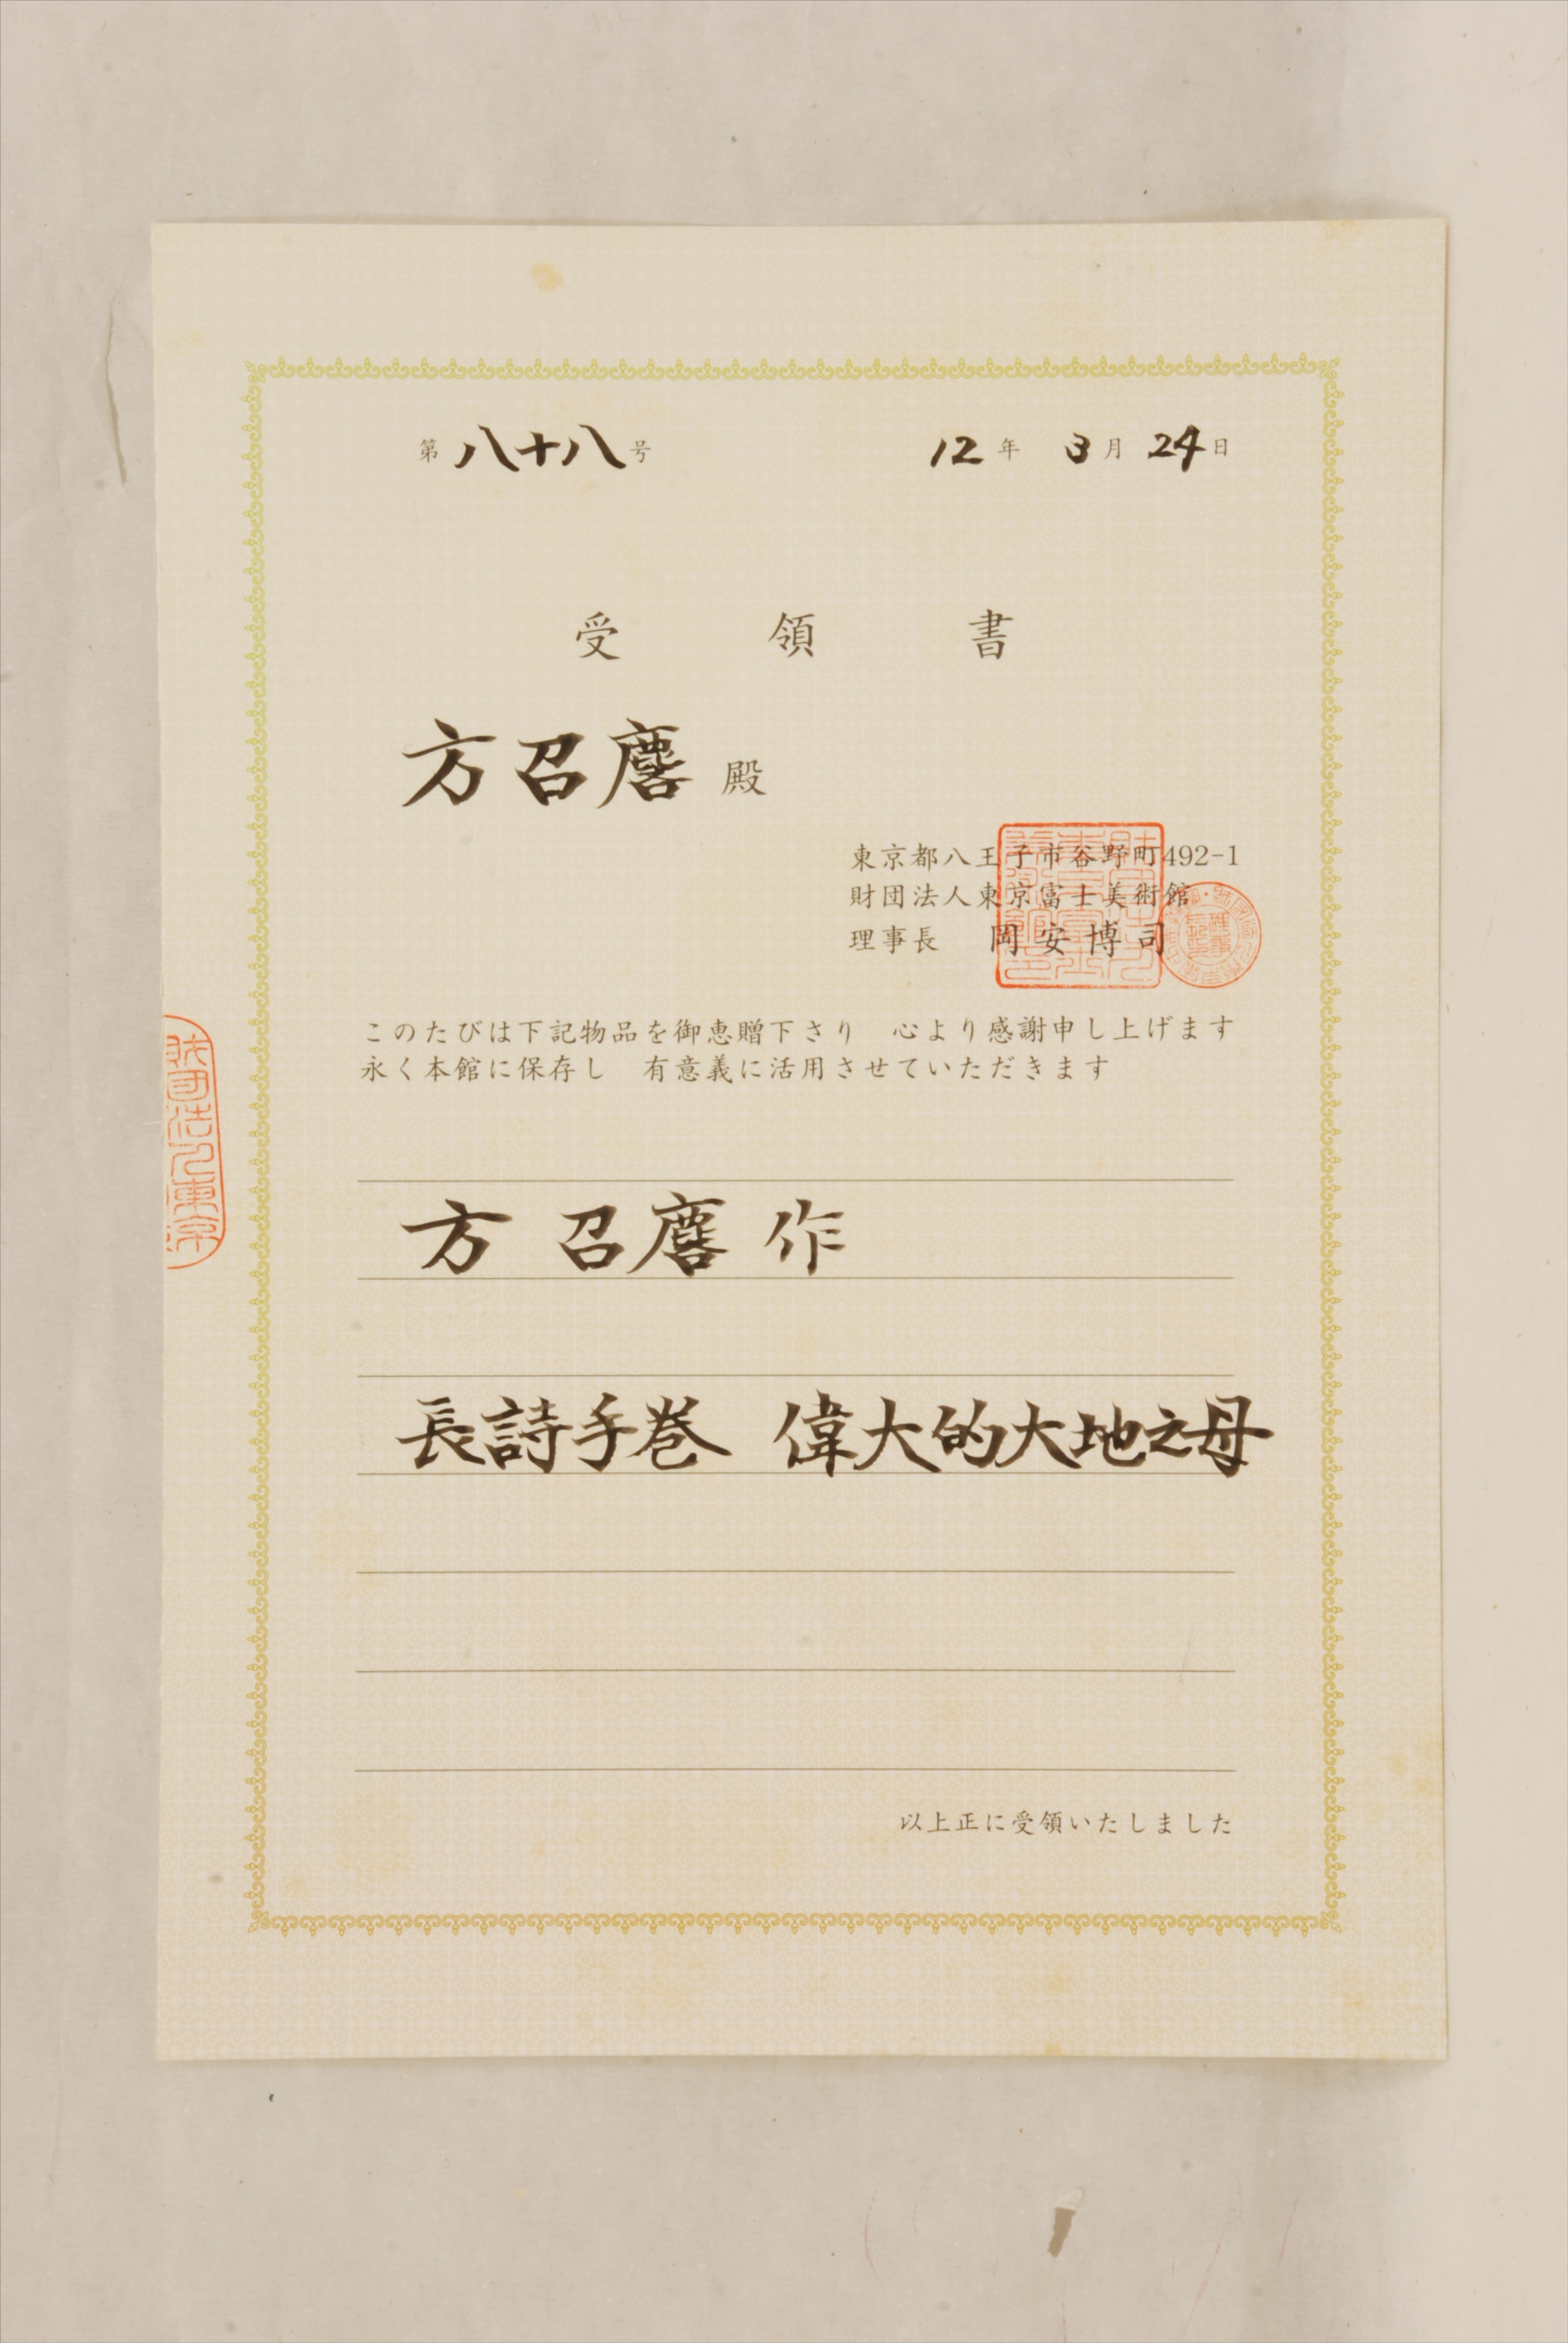 第八十八号 12年 3月 24日
受領書
方召麐 殿
東京都八王子市谷野町492-1
財団法人東京富士美術館
理事長 岡安博司
このたびは下記物品を御恵贈下さり 心より感謝申し上げます
永く本館に保存し 有意義に活用させていただきます
方 召麐 作
長詩手巻 偉大的大地之母
以上正に受領いたしました